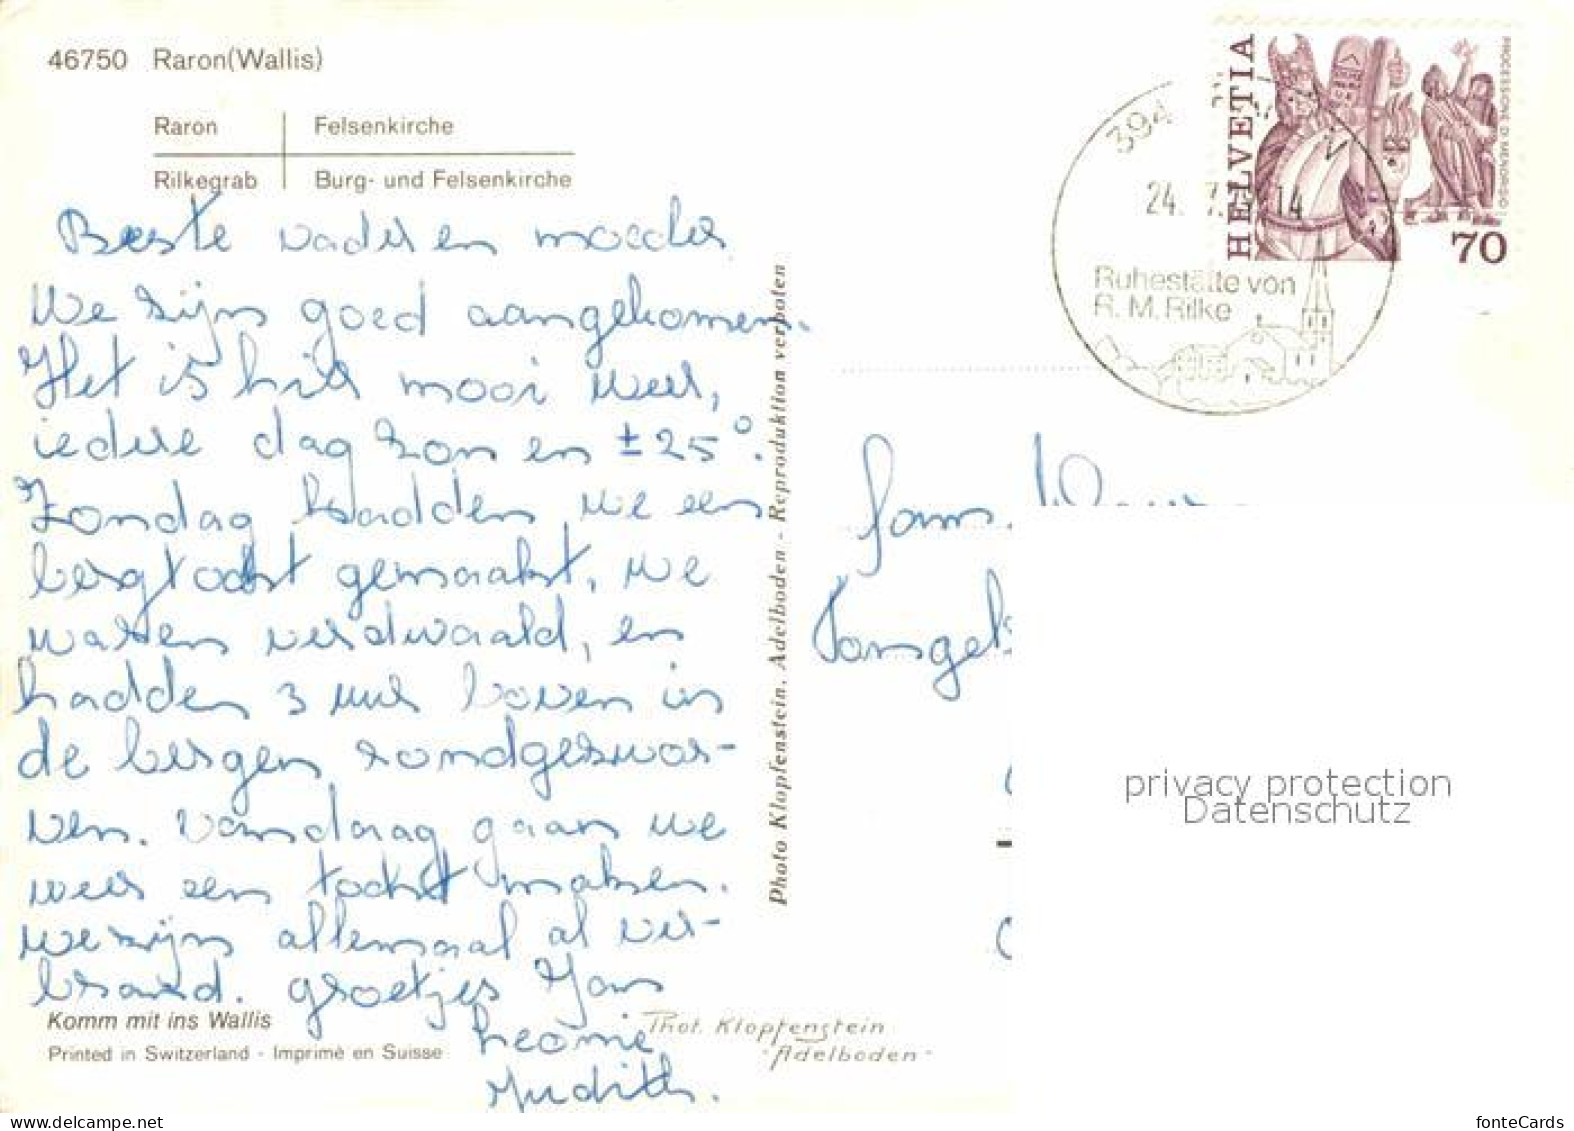 46750 Raron(Wallis)
Raron Felsenkirche
Rilkegrab Burg- und Felsenkirche
Beste vader en moeder
We zijn goed aangekomen.
Het is hier mooi weer,
iedere dag zon en ± 25°.
Zondag hadden we een
bergtocht gemaakt, we
waren verdwaald, en
hadden 3 uur boven in
de bergen rondgezwor-
ven. Vandaag gaan we
weer een tocht maken.
we zijn allemaal al ver-
brand. groetjes Jan
Leonie
Judith.
Komm mit ins Wallis
Printed in Switzerland - Imprimé en Suisse
Phot. Klopfenstein
Adelboden
Photo Klopfenstein, Adelboden - Reproduktion verboten
HELVETIA
PROCESSIONE DI MENDRISIO
70
394
24. 7. 14
Ruhestätte von
R. M. Rilke
Fam.
privacy protection
Datenschutz
www.delcampe.net
fonteCards